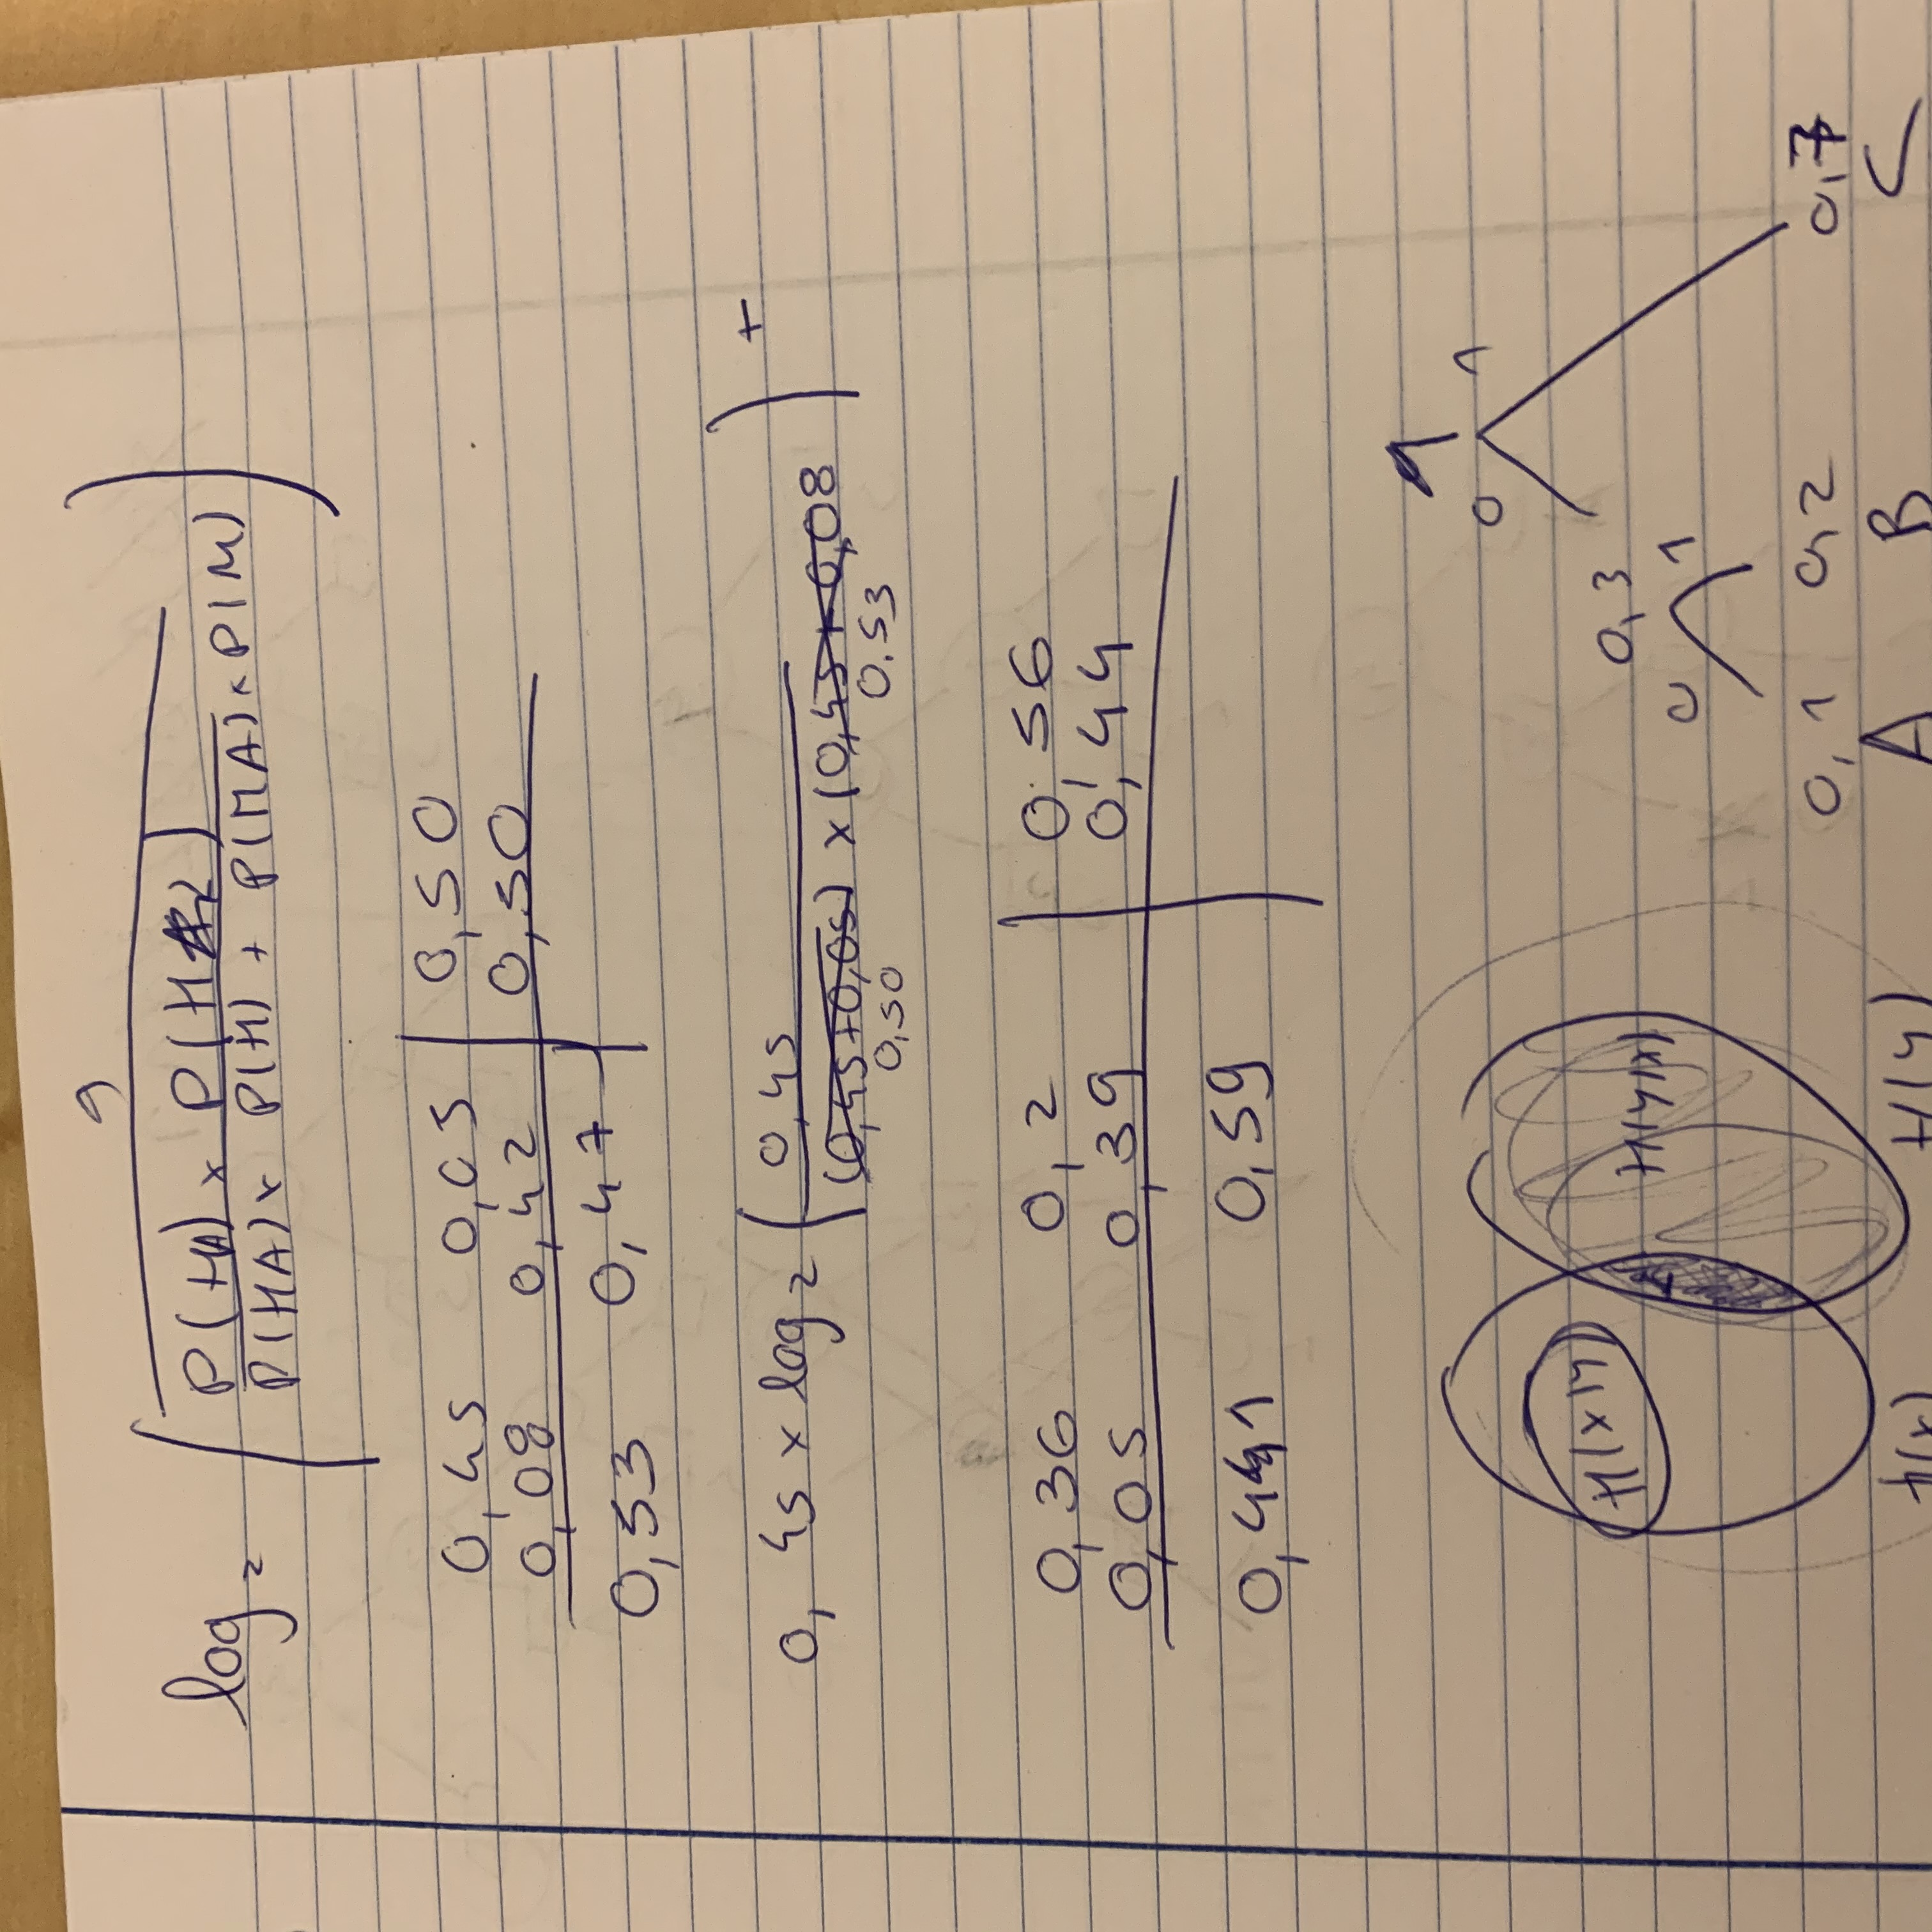 1
log₂ ( P(HA) × P(H
P(HA) × P(H) + P(MA) × P(M) )
0,45 0,05 | 0,50
0,08 0,42 | 0,50
0,53 0,47
0,45 × log₂ ( 0,45 ) +
(0,45+0,05) × (0,45+0,08
0,50 0,53
0,36 0,2 | 0,56
0,05 0,39 | 0,44
0,41 0,59
1
0 1
H(x|y) 0,3
H(y|x) 0 1
0,1 0,2 0,7
H(x) H(y) A B C